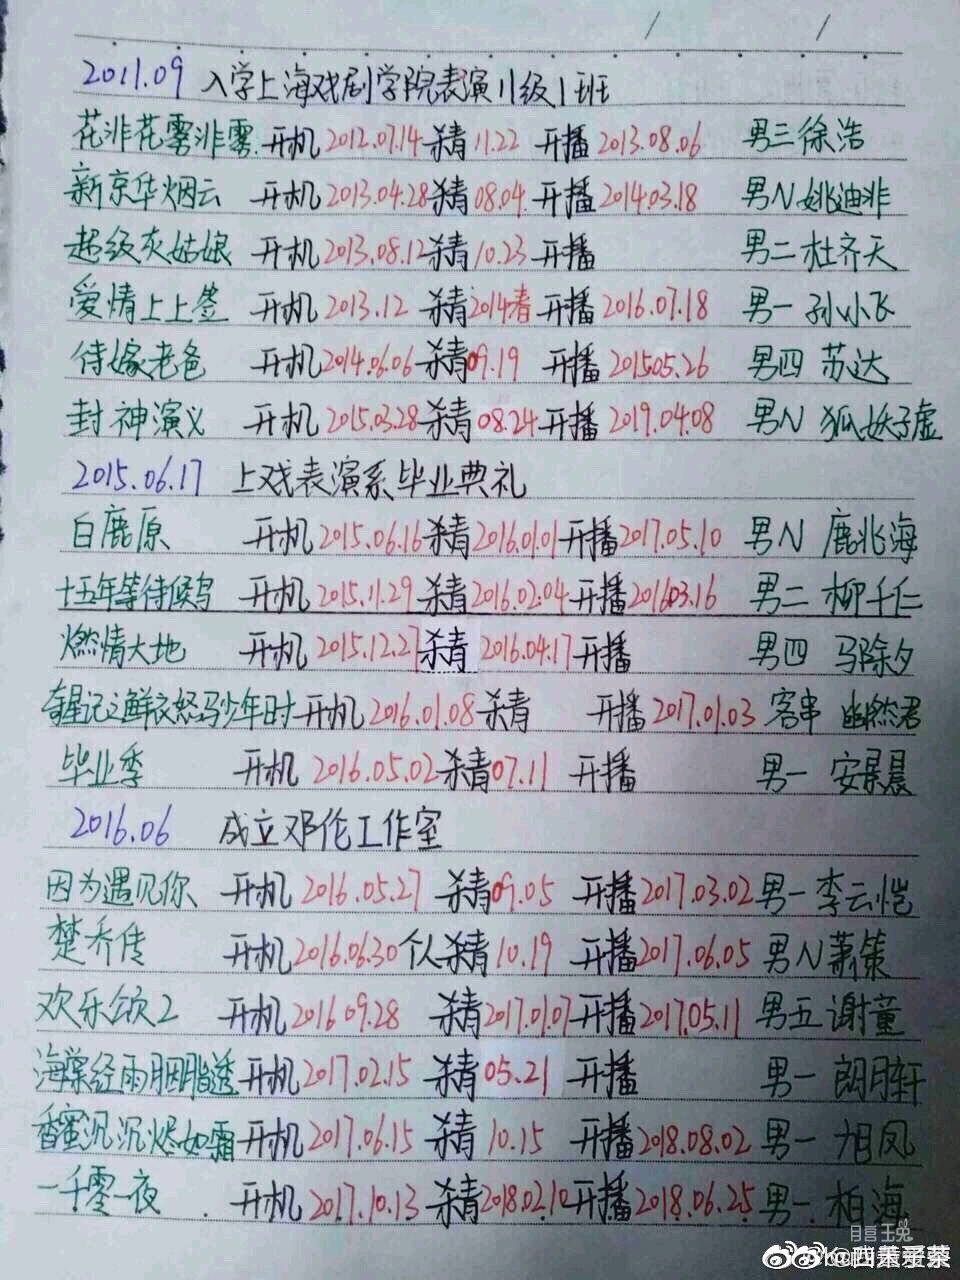 2011.09 入学上海戏剧学院表演11级1班
花非花雾非雾 开机2012.07.14杀青11.22 开播2013.08.06 男三徐浩
新京华烟云 开机2013.04.28杀青08.04 开播2014.03.18 男N姚迪非
超级灰姑娘 开机2013.08.12杀青10.23 开播 男二杜齐天
爱情上上签 开机2013.12 杀青2014春 开播2016.07.18 男一孙小飞
待嫁老爸 开机2014.06.06 杀青09.19 开播2015.05.26 男四 苏达
封神演义 开机2015.03.28杀青08.24 开播2019.04.08 男N 狐妖子虚
2015.06.17 上戏表演系毕业典礼
白鹿原 开机2015.06.16杀青2016.01.01开播2017.05.10 男N 鹿兆海
十五年等待候鸟 开机2015.11.29 杀青2016.02.04开播2016.03.16 男二 柳千仁
燃情大地 开机2015.12.27杀青2016.04.17开播 男四 马除夕
奇星记之鲜衣怒马少年时 开机2016.01.08杀青 开播2017.01.03 客串 幽然君
毕业季 开机2016.05.02杀青07.11 开播 男一 安景晨
2016.06 成立邓伦工作室
因为遇见你 开机2016.05.27 杀青09.05 开播2017.03.02男一李云恺
楚乔传 开机2016.06.30个人杀青10.19 开播2017.06.05 男N萧策
欢乐颂2 开机2016 09.28 杀青2017.01.07开播2017.05.11 男五谢童
海棠经雨胭脂透 开机2017.02.15 杀青05.21 开播 男一 朗月轩
香蜜沉沉烬如霜 开机2017.06.15 杀青10.15 开播2018.08.02 男一 旭凤
一千零一夜 开机2017.10.13 杀青2018.02.10开播2018.06.25 男一 柏海